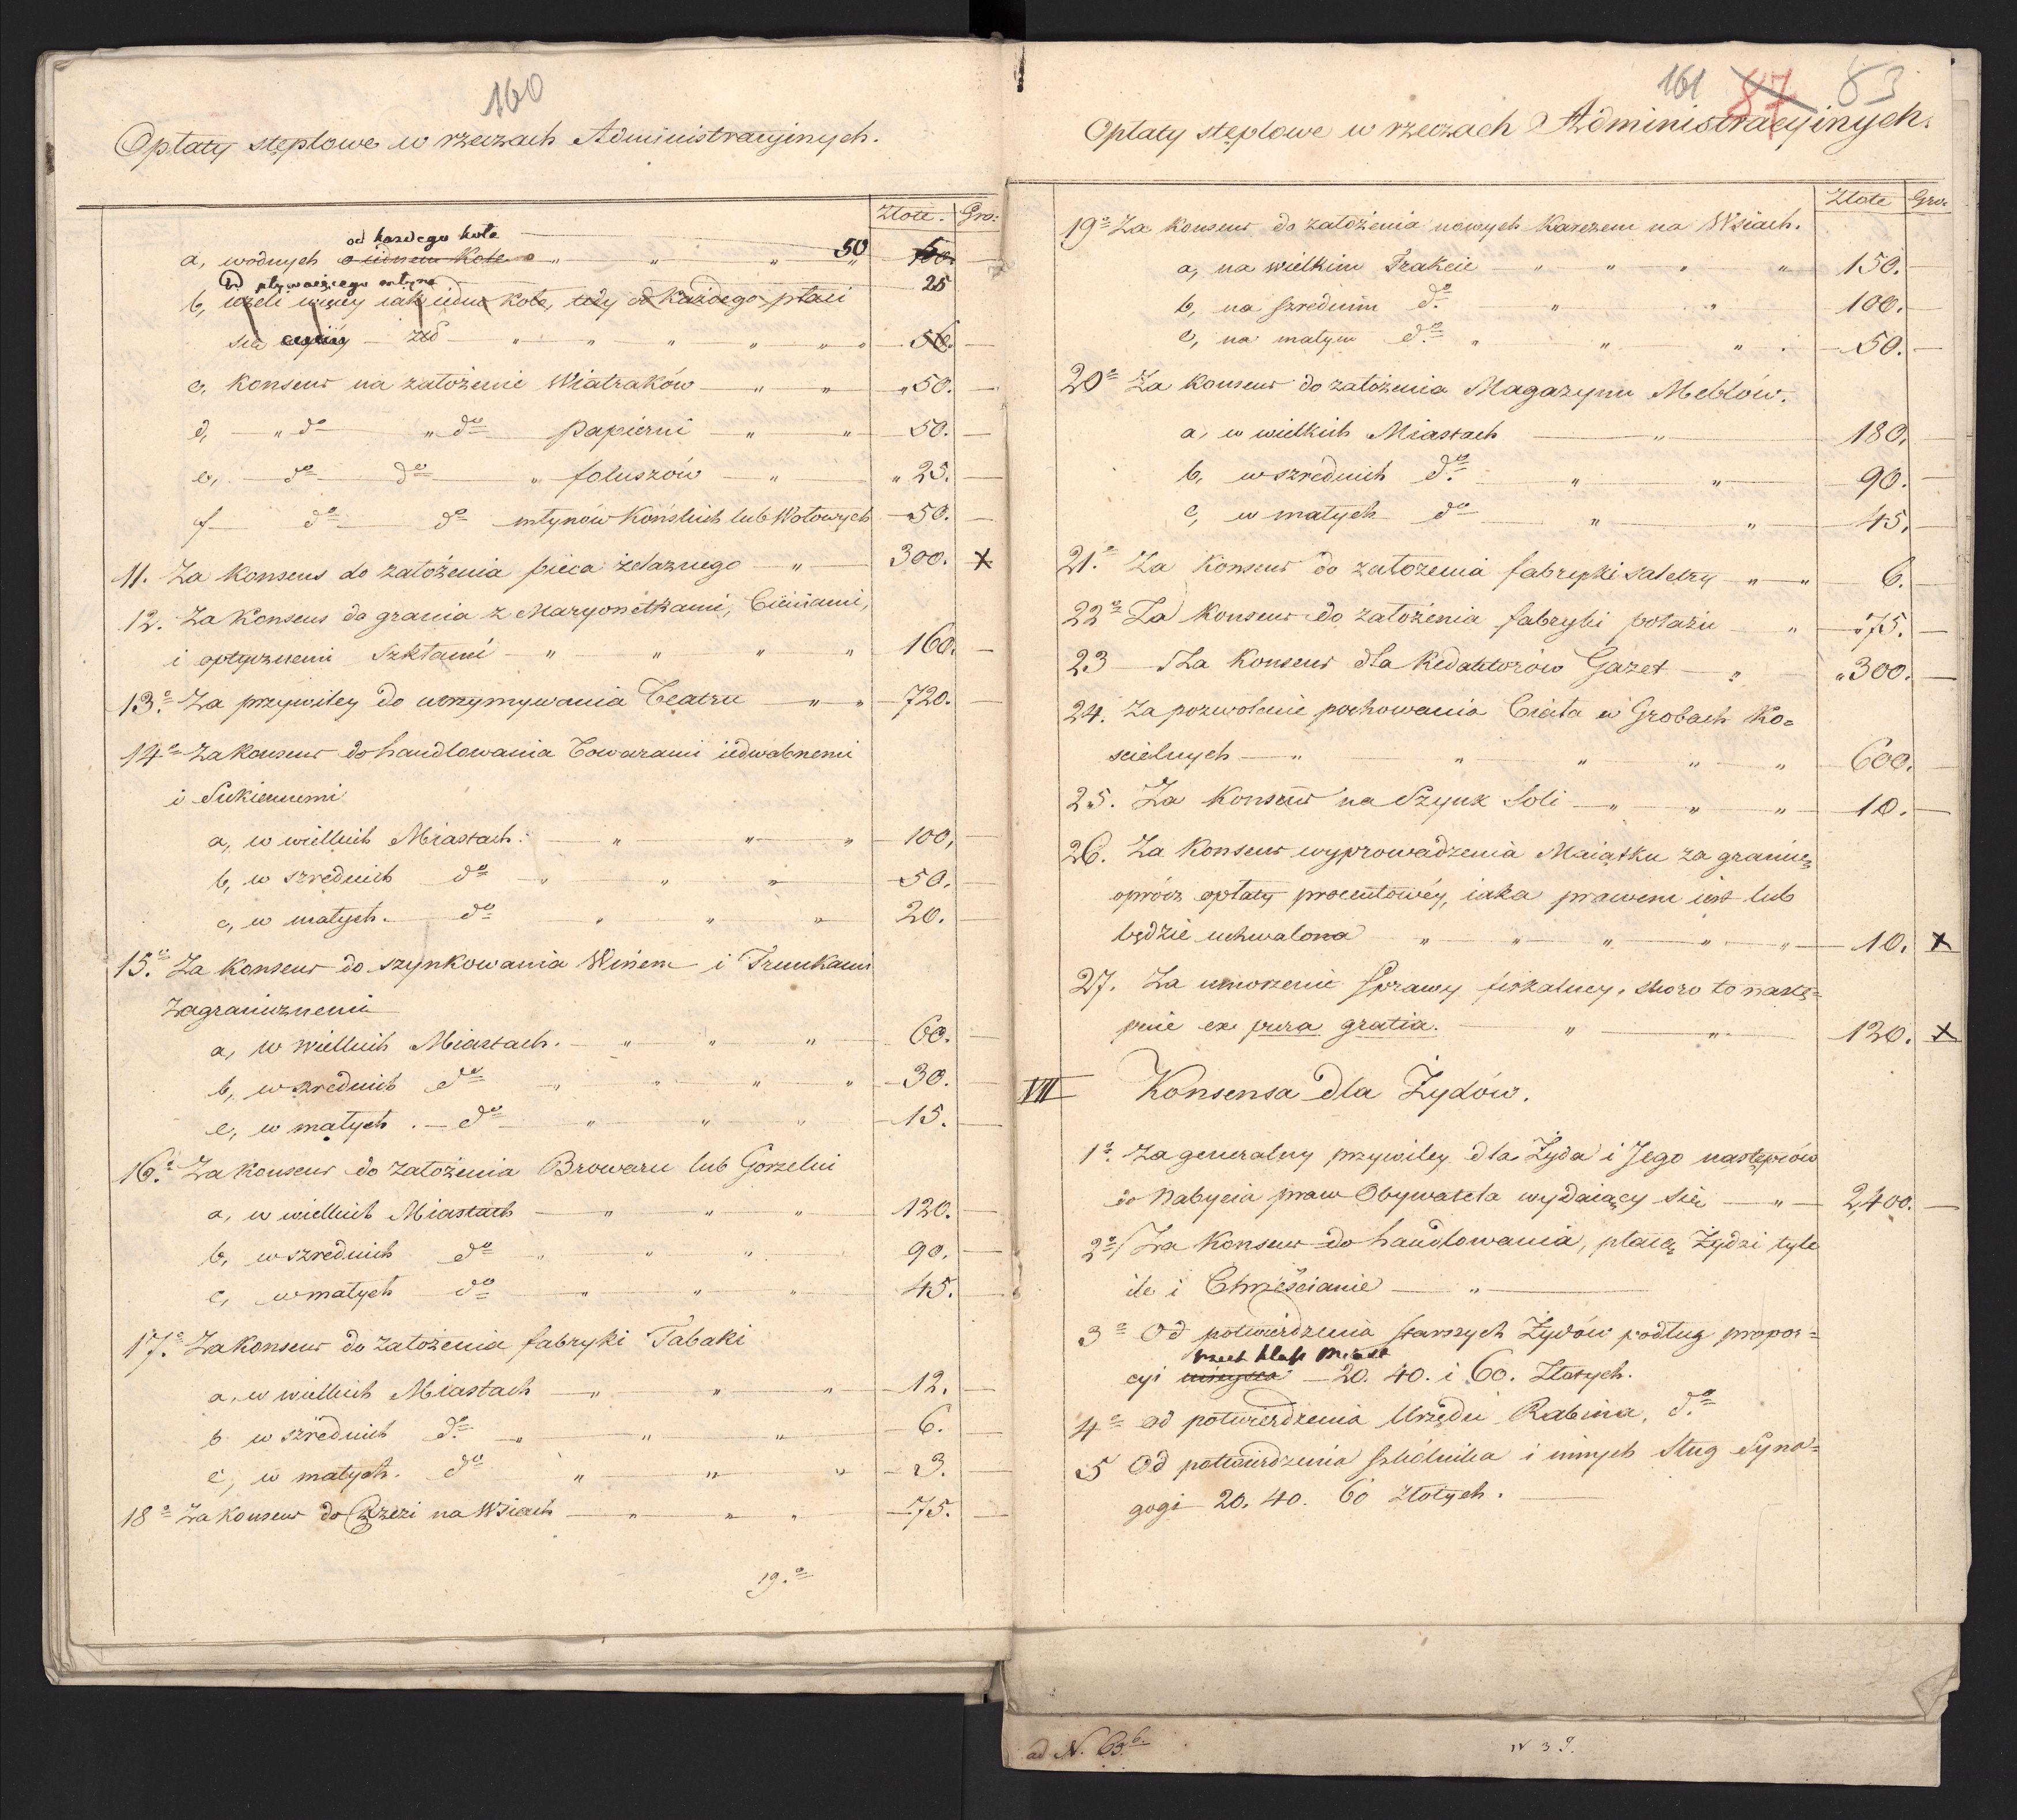 160
Opłaty stęplowe w rzeczach Administracyinych.
Złote. Gro:
od każdego koła
a, wodnych o iednem Kole „ „ „ 50 100.
Od pływaiącego młyna 25
b, ieżeli więcey iak iedno koło, tedy od każdego płaci
się — Złł — „ „ „ „ „ 50.
c, konsens na założenie Wiatraków — „ „ „ 50.
d, — „ do „ do papierni — „ „ 50.
e, — do do „ foluszów — „ „ 25.
f — do do młynów Końskich lub Wołowych 50.
11. Za konsens do założenia pieca żelaznego — „ 300. X
12. Za Konsens do grania z Maryonetkami, Cieniami,
i optycznemi Szkłami — „ „ „ „ 160.
13.o Za przywiley do utrzymywania Teatru — „ „ 720.
14o Za konsens do handlowania Towarami iedwabnemi
i Sukiennemi
a, w wielkich Miastach. „ „ „ 100.
b, w szrednich do „ „ „ 50.
c, w małych. do „ „ „ 20.
15.o Za konsens do szynkowania Winem i Trunkami
Zagranicznemi
a, w wielkich Miastach. „ „ „ 60.
b, w szrednich do „ „ „ „ 30.
c, w małych. — do „ „ „ 15.
16.o Za konsens do założenia Browaru lub Gorzelni
a, w wielkich Miastach „ „ „ 120.
b, w szrednich do „ „ „ 90.
c, w małych do „ „ „ 45.
17.o Za konsens do założenia fabryki Tabaki
a, w wielkich Miastach — „ „ „ 12.
b w szrednich do. „ „ „ 6.
c, w małych. do „ „ „ 3.
18o Za konsens do Rzezi na Wsiach — „ „ „ 75.
19.o
161 87 83
Opłaty stęplowe w rzeczach Administracyinych.
Złote Gro:
19o Za konsens do założenia nowych Karczem na Wsiach.
a, na wielkim Trakcie „ „ „ „ 150.
b, na szrednim do. „ „ 100.
c, na małym do. „ „ „ 50.
20o Za konsens do założenia Magazynu Meblów.
a, w wielkich Miastach — „ 180.
b, w szrednich do. „ „ 90.
c, w małych do „ „ 45.
21.o Za Konsens do założenia fabrycki saletry „ „ 6.
22o Za Konsens do założenia fabryki potażu „ „ 75.
23 Za Konsens dla Redaktorów Gazet — „ „ 300.
24. Za pozwolenie pochowania Ciała w Grobach Ko=
scielnych — „ „ „ „ „ 600.
25. Za Konsens na Szynk Soli — „ „ „ 10.
26. Za Konsens wyprowadzenia Maiątku za granicę
oprócz opłaty procentowéy, iaka prawem iest lub
będzie uchwalona „ „ „ „ „ 10. X
27. Za umorzenie Sprawy fiskalney, skoro to nastę=
pnie ex pura gratia. „ „ 120. X
VII Konsensa dla Żydów.
1o. Za generalny przywiley dla Żyda i Jego następców
do Nabycia praw Obywatela wydaiący się — „ 2,400.
2o/ Za Konsens do handlowania, płacą Żydzi tyle
ile i Chrześcianie — „
3o Od potwierdzenia starszych Żydów podług propor=
trzech klass Miast
cyi mieysca — 20. 40. i 60. Złotych.
4o od potwierdzenia Urzędu Rabina, do.
5 Od potwierdzenia Szkólnika i innych Sług Syna=
gogi 20. 40. 60 złotych.
ad N. 63 b.